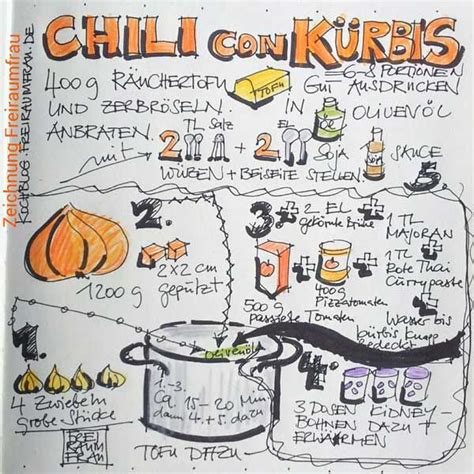 CHILI CON KÜRBIS
6-8 PORTIONEN
400 g RÄUCHERTOFU TOFU GUT AUSDRÜCKEN
UND ZERBRÖSELN. IN OLIVENÖL
ANBRATEN.
mit 2 TL Salz + 2 EL SOJA SAUCE
WÜRZEN + BEISEITE STELLEN.
5
2.
2x2 cm
1200 g geputzt
3. + 2 EL
gekörnte Brühe
+ 1 TL
MAJORAN
+ 1 TL
Rote Thai
Currypaste
+
Wasser bis
Kürbis knapp
bedeckt
500 g
passierte
Tomaten
400g
Pizzatomaten
1.
4 Zwiebeln
grobe Stücke
OLIVENÖL
1.-3.
Ca. 15-20 Min
dann 4.+5. dazu
TOFU DAZU
4.
3 DOSEN KIDNEY-
BOHNEN DAZU +
ERWÄRMEN
FREI
RAUM
FRAU
Zeichnung Freiraumfrau
KOCHBLOG.FREIRAUMFRAU.DE